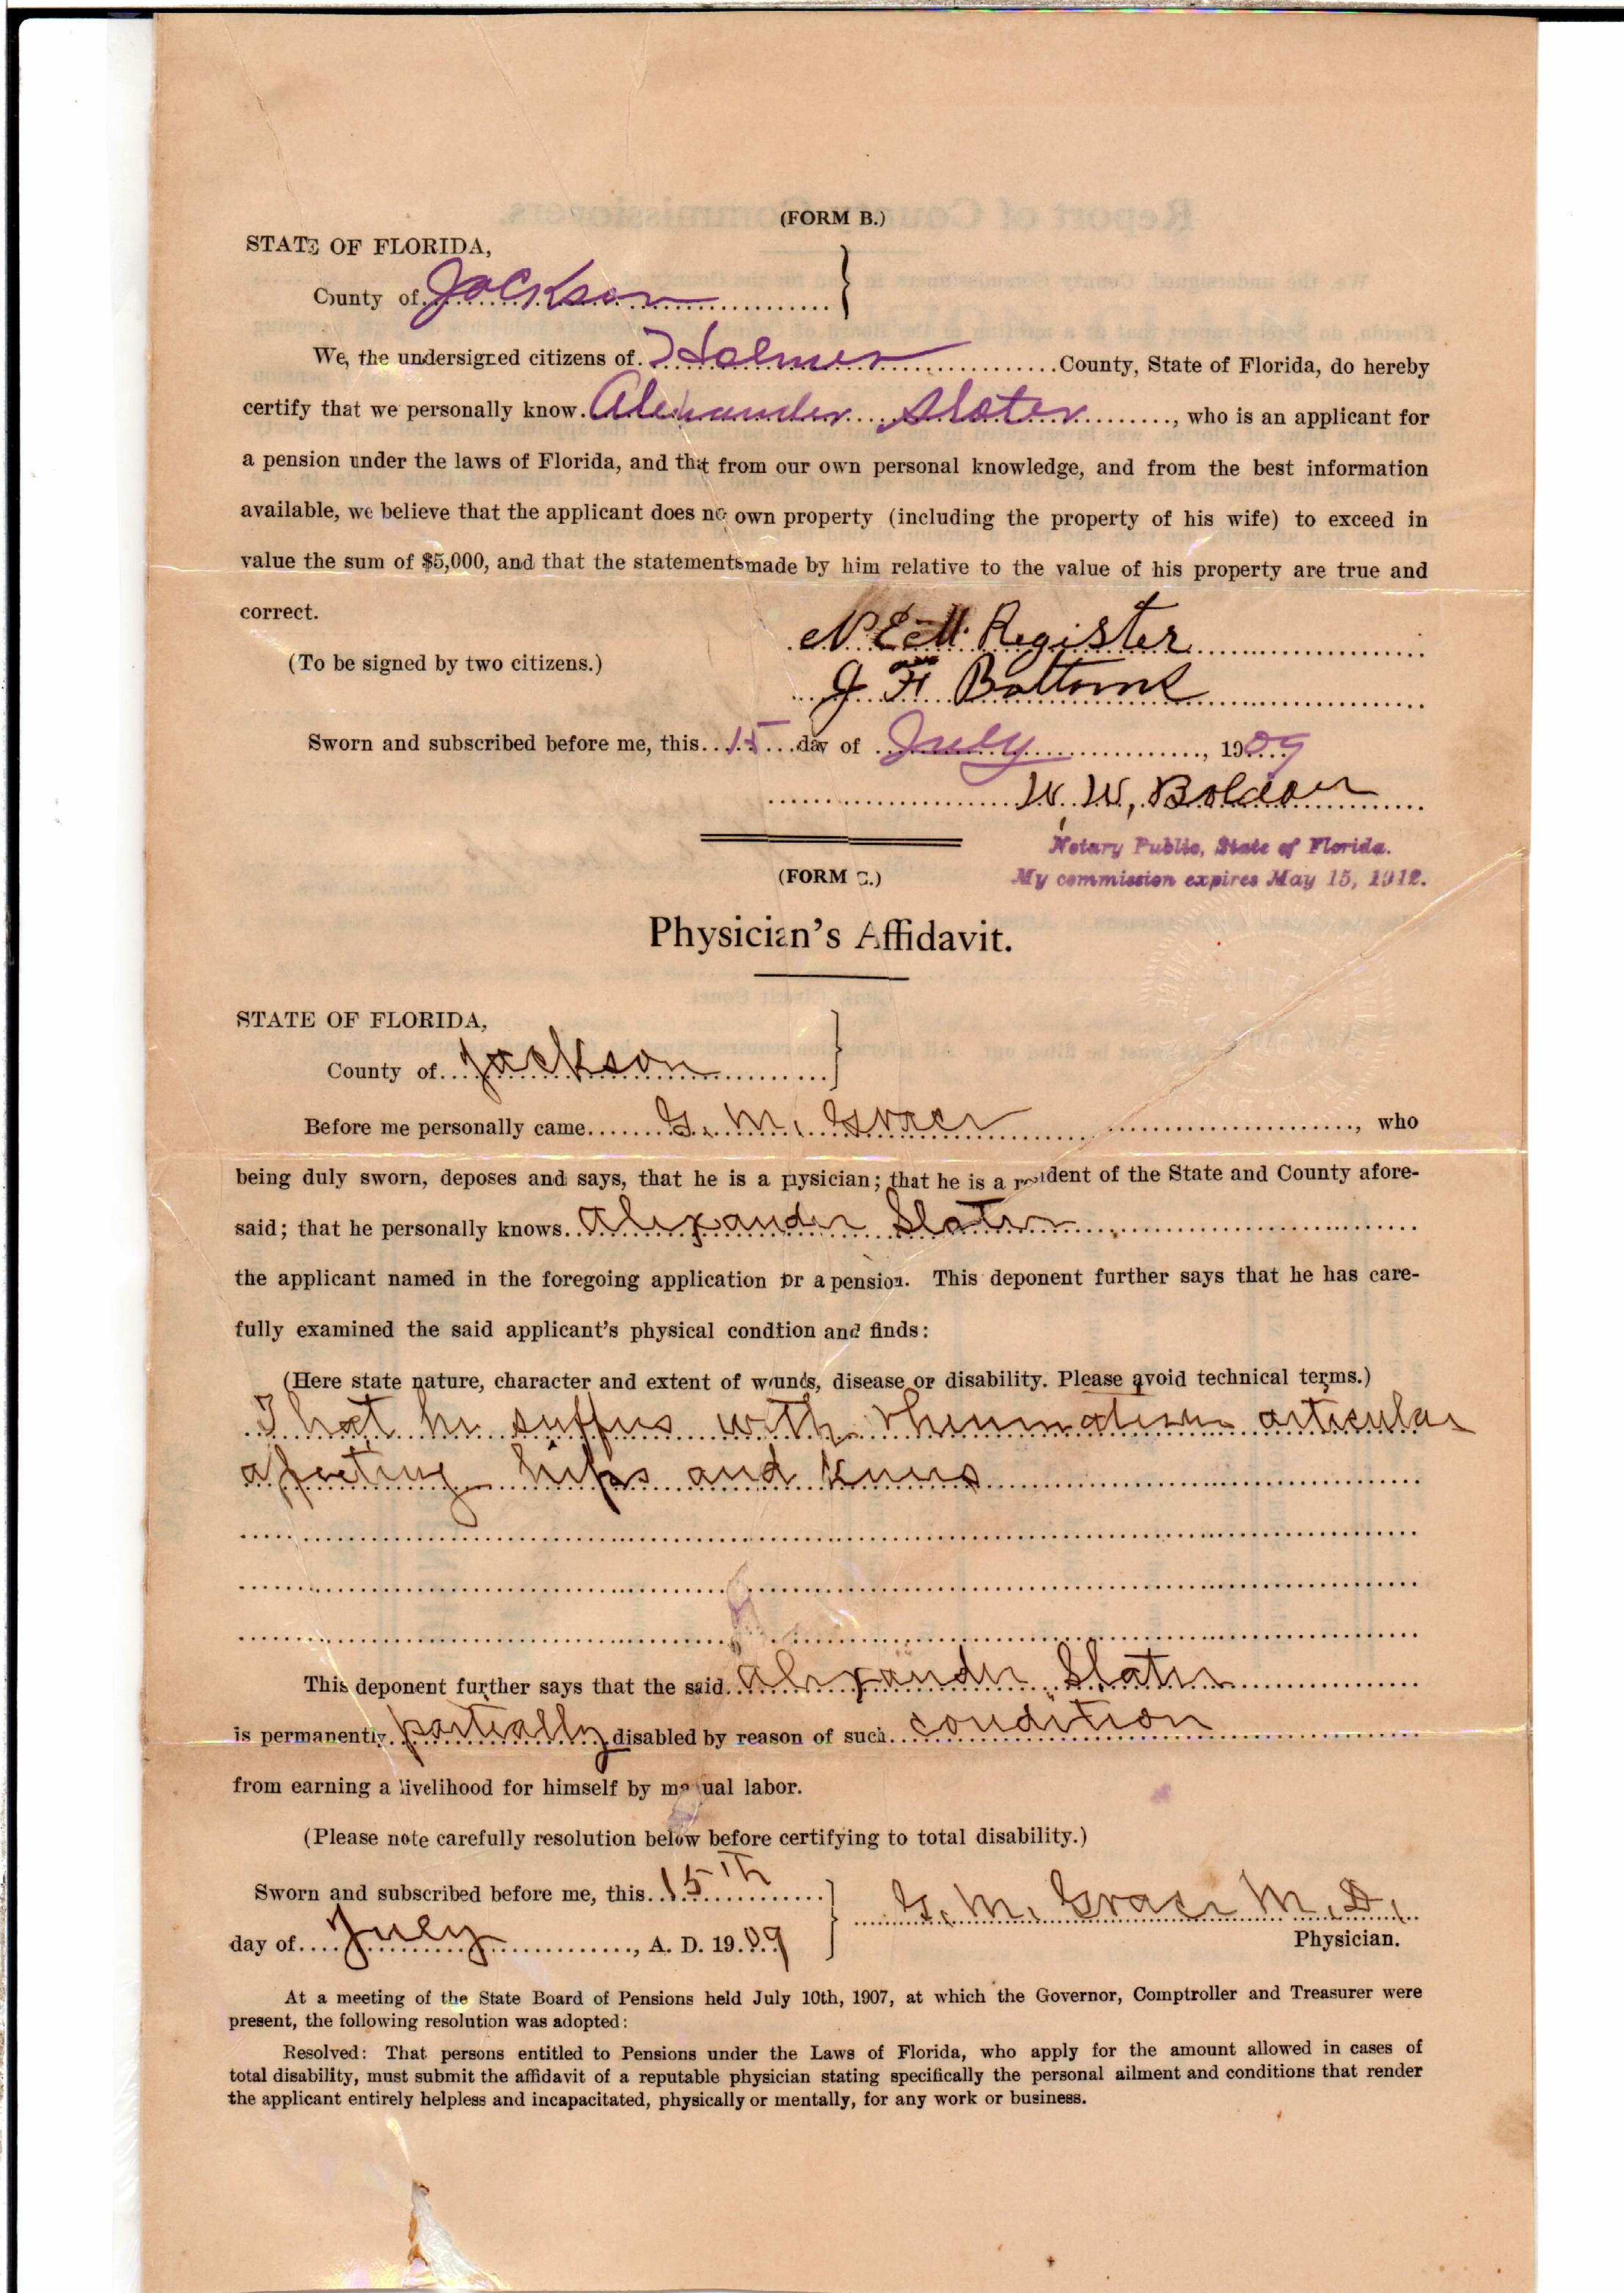 (FORM B.)
STATE OF FLORIDA,
County of Jackson
We, the undersigned citizens of Holmes County, State of Florida, do hereby
certify that we personally know Alexander Slater, who is an applicant for
a pension under the laws of Florida, and that from our own personal knowledge, and from the best information
available, we believe that the applicant does no own property (including the property of his wife) to exceed in
value the sum of $5,000, and that the statements made by him relative to the value of his property are true and
correct.
Register
(To be signed by two citizens.)
J. F. Bottoms
Sworn and subscribed before me, this 15 day of July, 1909
W. W. Boldon
Notary Public, State of Florida.
My commission expires May 15, 1912.
(FORM C.)
Physician's Affidavit.
STATE OF FLORIDA,
County of Jackson
Before me personally came G. M. Grace, who
being duly sworn, deposes and says, that he is a pysician; that he is a resident of the State and County afore-
said; that he personally knows Alexander Slater
the applicant named in the foregoing application for a pension. This deponent further says that he has care-
fully examined the said applicant's physical condtion and finds:
(Here state nature, character and extent of wounds, disease or disability. Please avoid technical terms.)
That he suffers with rheumatism articular
affecting hips and knees
This deponent further says that the said Alexander Slater
is permanently partially disabled by reason of such condition
from earning a livelihood for himself by manual labor.
(Please note carefully resolution below before certifying to total disability.)
Sworn and subscribed before me, this 15th
G. M. Grace M. D.
day of July, A. D. 1909
Physician.
At a meeting of the State Board of Pensions held July 10th, 1907, at which the Governor, Comptroller and Treasurer were
present, the following resolution was adopted:
Resolved: That persons entitled to Pensions under the Laws of Florida, who apply for the amount allowed in cases of
total disability, must submit the affidavit of a reputable physician stating specifically the personal ailment and conditions that render
the applicant entirely helpless and incapacitated, physically or mentally, for any work or business.